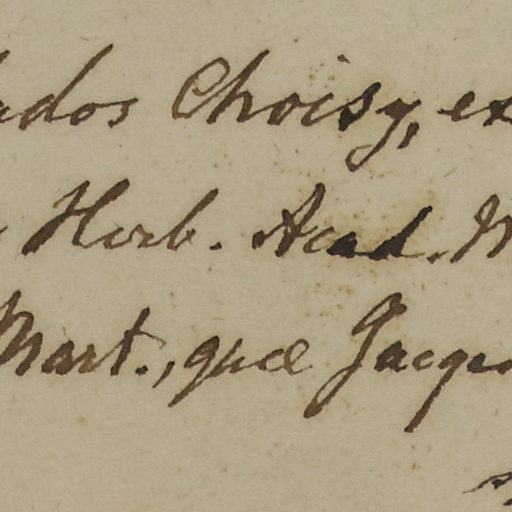 ados Choisy, ex
Herb. Acad.
Mart., quæ Jacqu